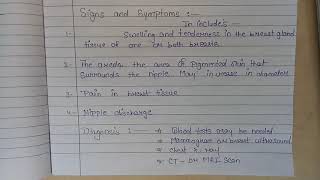 Signs and Symptoms :-
It includes -
1- Swelling and tenderness in the breast gland
tissue of one or both breasts.
2- The areola the area of pigmented skin that
surrounds the nipple May increase in diameter
3- Pain in breast tissue
4- Nipple discharge
Diagnosis :- → Blood tests may be needed
→ Mammogram or breast ultrasound
→ Chest X-ray
→ CT - or MRI Scan